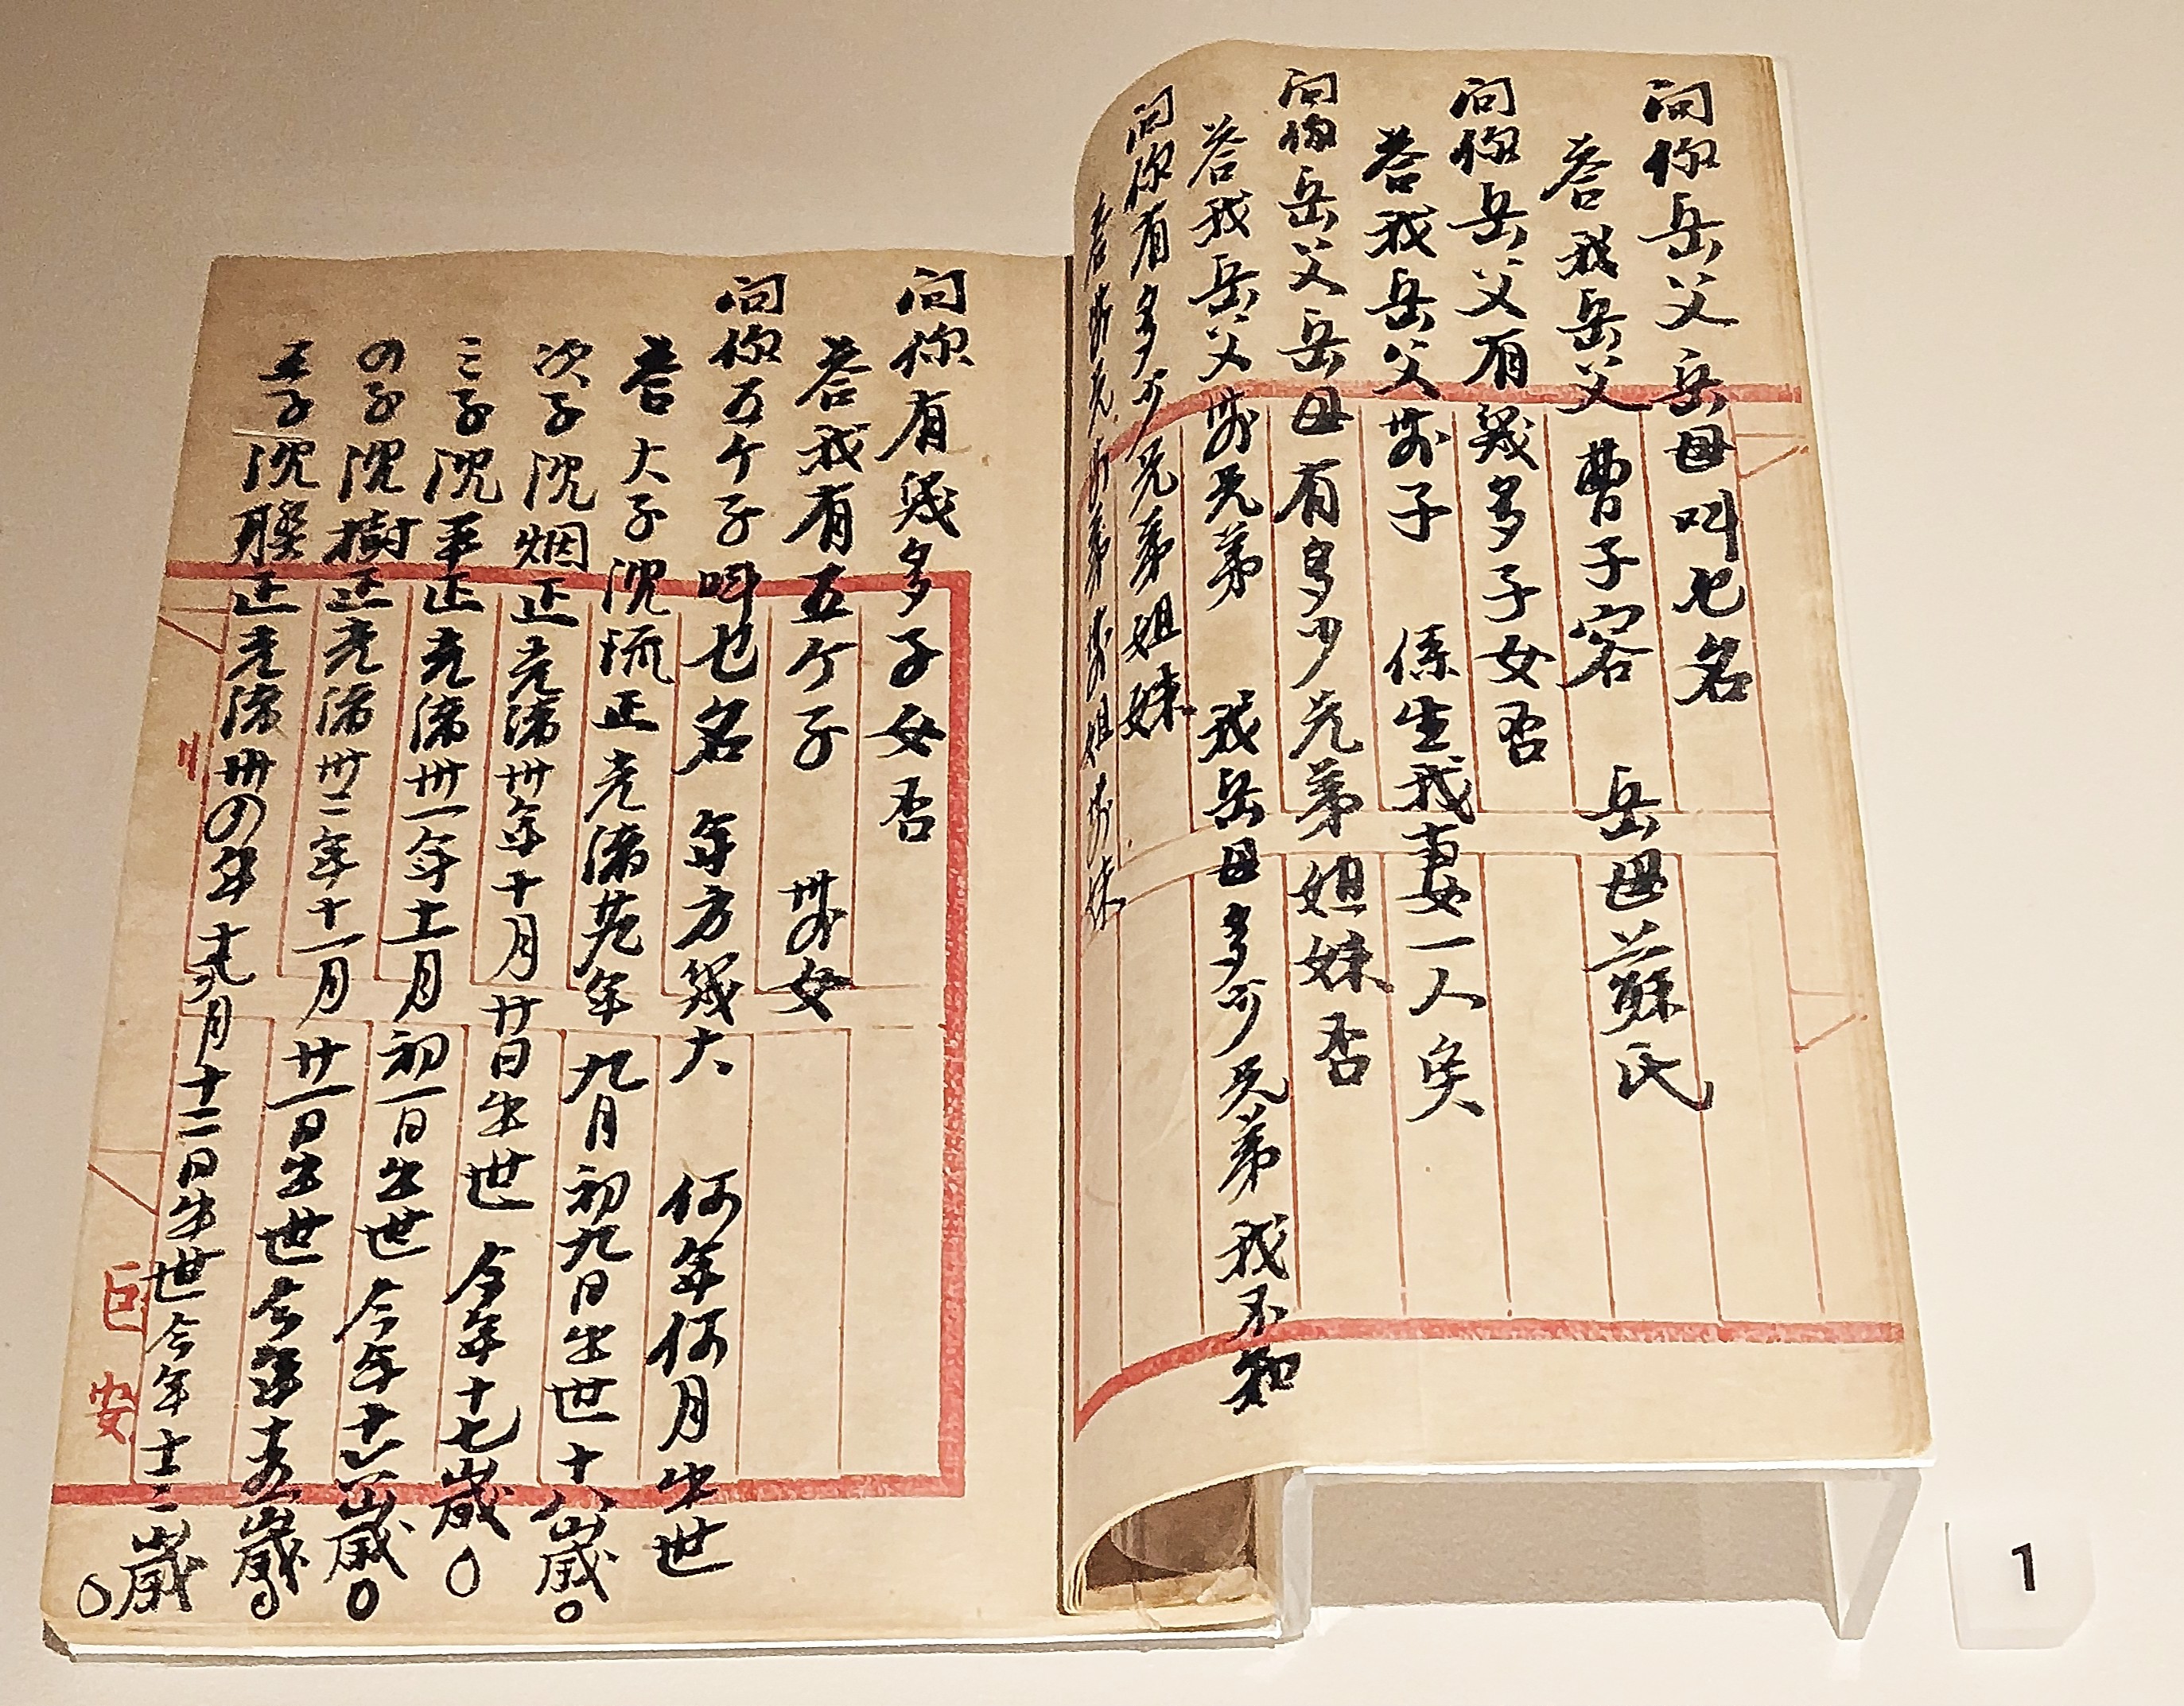 问你岳父岳母叫乜名
荅我岳父曹子容 岳母蘇氏
问你岳父有幾多子女否
荅我岳父无子 係生我妻一人矣
问你岳父岳母有多少兄弟姐妹否
荅我岳父无兄弟 我岳母多少兄弟我不知
问你有多少兄弟姐妹
荅
问你有幾多子女否
荅我有五个子 无女
问你五个子叫乜名 年方幾大 何年何月出世
荅大子沈 正光绪 年九月初九日出世十八嵗
次子沈烟正光绪卅年十月廿日出世今年十七嵗
三子沈 正光绪卅一年十一月初一日出世今年十六嵗
四子沈樹正光绪卅二年十一月廿一日出世今年十五嵗
五子沈 正光绪卅四年 月十二日出世今年十二嵗
巨安
1